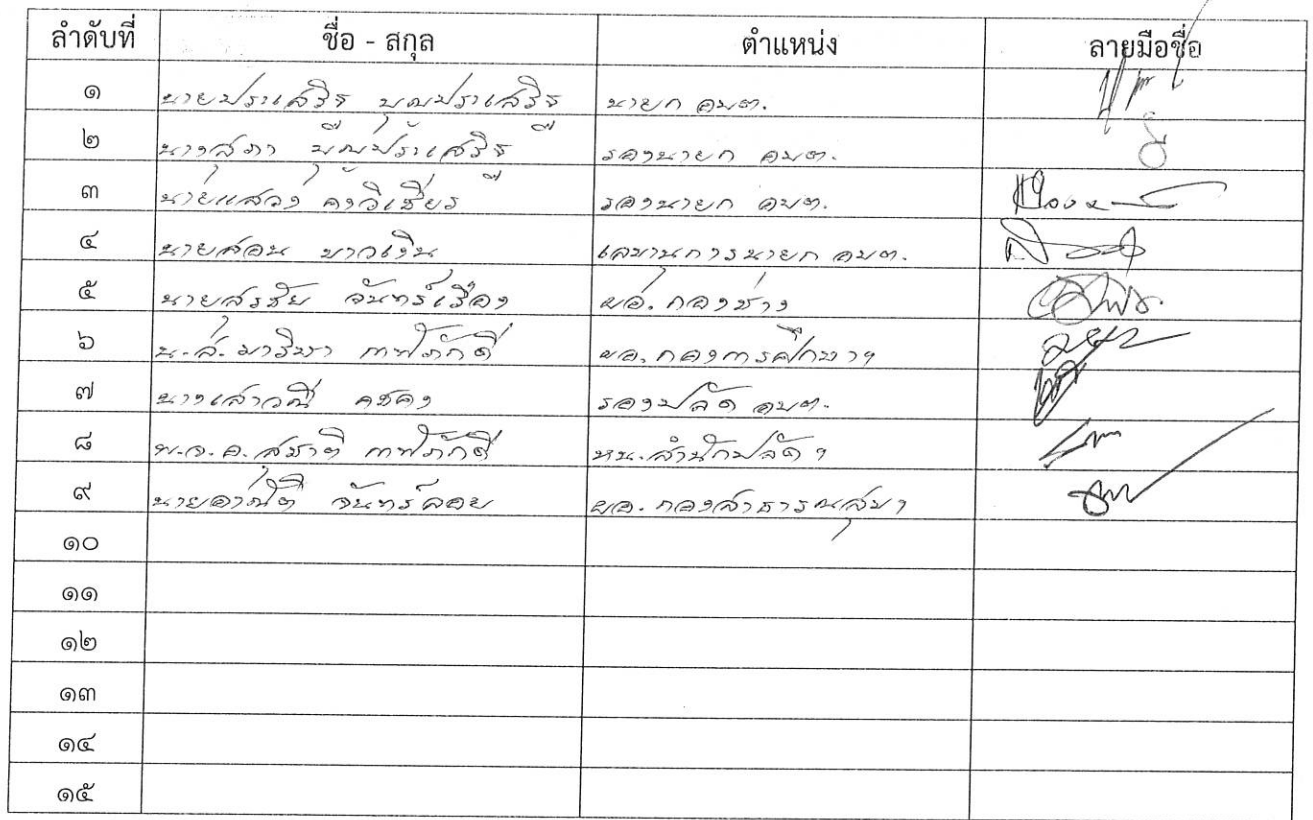 ลำดับที่ ชื่อ - สกุล ตำแหน่ง ลายมือชื่อ
๑ นายประเสริฐ บุญประเสริฐ นายก อบต.
๒ นางสุภา บุญประเสริฐ รองนายก อบต.
๓ นายแสวง คงวิเชียร รองนายก อบต.
๔ นายสอน ขาวเงิน เลขานุการนายก อบต.
๕ นายสุรชัย จันทร์เรือง ผอ.กองช่าง
๖ น.ส. มาริษา ภักดี ผอ.กองการศึกษาฯ
๗ นางเสาวณี คชคง รองปลัด อบต.
๘ พ.จ.อ.สุชาติ ภักดี หน.สำนักปลัดฯ
๙ นายอาณัติ จันทร์ลอย ผอ.กองสาธารณสุขฯ
๑๐
๑๑
๑๒
๑๓
๑๔
๑๕